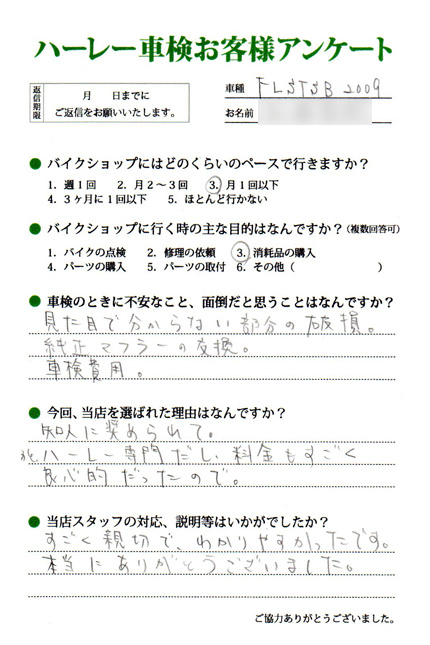 ハーレー車検お客様アンケート
返信期限
月　　日までに
ご返信をお願いいたします。
車種 FLSTSB 2009
お名前
● バイクショップにはどのくらいのペースで行きますか？
1. 週1回　2. 月2～3回　3. 月1回以下
4. 3ヶ月に1回以下　5. ほとんど行かない
● バイクショップに行く時の主な目的はなんですか？（複数回答可）
1. バイクの点検　2. 修理の依頼　3. 消耗品の購入
4. パーツの購入　5. パーツの取付　6. その他（　　　　　　）
● 車検のときに不安なこと、面倒だと思うことはなんですか？
見た目で分からない部分の破損。
純正マフラーの交換。
車検費用。
● 今回、当店を選ばれた理由はなんですか？
知人に奨められて。
ハーレー専門だし、料金もすごく
良心的だったので。
● 当店スタッフの対応、説明等はいかがでしたか？
すごく親切で、わかりやすかったです。
本当にありがとうございました。
ご協力ありがとうございました。